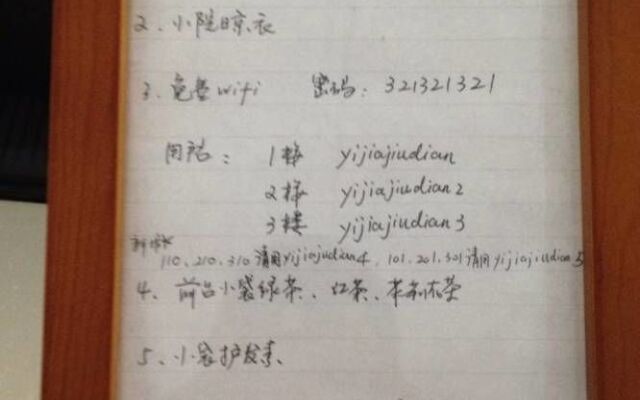 2、小院晾衣
3、免费wifi 密码：321321321
网络：1楼 yijiajiudian
2楼 yijiajiudian2
3楼 yijiajiudian3
新增
110、210、310请用yijiajiudian4，101、201、301请用yijiajiudian5
4、前台小袋绿茶、红茶、茉莉花茶
5、小袋护发素、